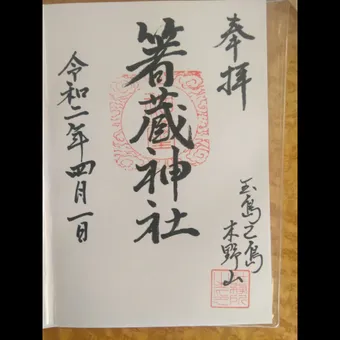 奉拝
玉島乙島
木野山
箸蔵神社
令和二年四月一日